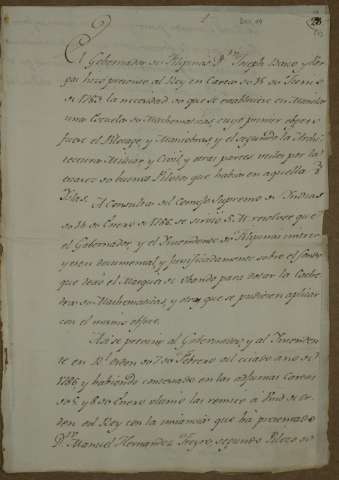 1
El Gobernador de Filipinas Dn. Joseph Basco y Var
gas hizo presente al Rey en Carta de de
de 1783 la necesidad de que se estableciese en Manila
una Escuela de Mathematicas cuyo primer objeto
fuese el Pilotage, y Maniobras, y el segundo la Archi
tectura Militar y Civil, y otras partes utiles por la
escasez de buenos Pilotos que habia en aquellas
Yslas.
A Consulta del Consejo Supremo de Indias
de de Enero de 1786 se sirvió S. M. resolver que
el Gobernador, y el Yntendente de Filipinas
documental, y justificadamente sobre el fondo
que dexó el Marques de Obando para dotar la Cathe
dra de Mathematicas, y otros que se pudiesen aplicar
con el mismo objeto.
Asi se previno al Gobernador, y al Yntenden
te en Rl. orden de 7 de Febrero del citado año de
1786 y habiendo contestado en las adjuntas Cartas
de 5 y 8 de Enero ultimo las remito a de or
den del Rey con la instancia que ha presentado
Dn. Manuel Hernandez segundo Piloto de